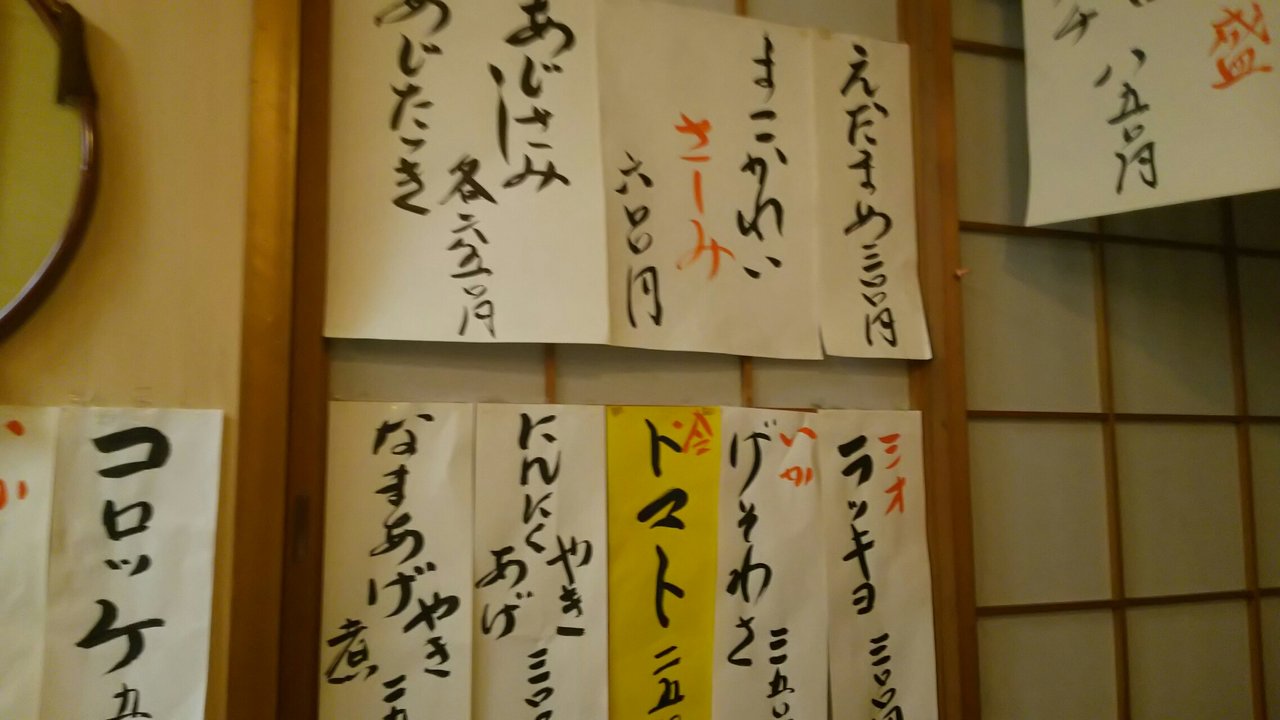 盛
八五〇円
えだまめ三〇〇円
まこがれい
さしみ
六〇〇円
あじさしみ
あじたたき
各六五〇円
シオ
ラッキョ三〇〇円
いか
げそわさ三五〇
冷
トマト二五〇
にんにく
やき
あげ
三〇〇
なまあげ
やき
煮
コロッケ五
か